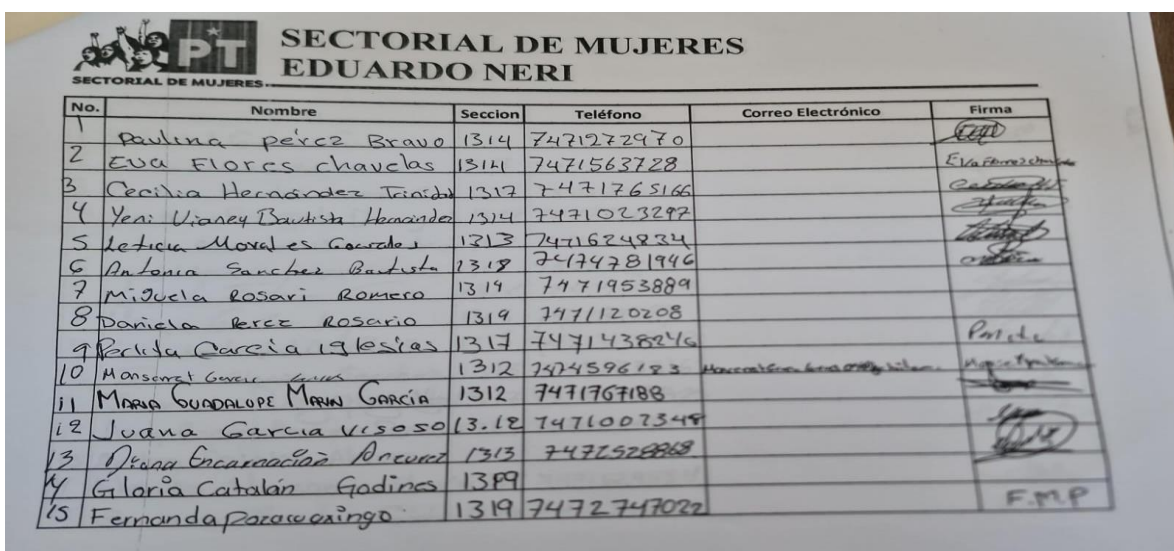 PT
SECTORIAL DE MUJERES
EDUARDO NERI
SECTORIAL DE MUJERES
No. Nombre Seccion Teléfono Correo Electrónico Firma
1 Paulina pérez Bravo 1314 7471272970
2 EVa Flores chavelas 1314 7471563728 EVa Florez
3 Cecilia Hernández Trinidad 1317 7471765166
4 Yeni Vianey Bautista Hernández 1314 7471023297
5 Leticia Morales 1313 7471624834
6 Antonia Sanchez Bautista 1318 7474781946
7 Miguela Rosari Romero 1319 7471953889
8 Daniela Perez Rosario 1319 7471120208
9 Perlita Garcia iglesias 1317 7471438246
10 Monserrat 1312 7474596183
11 MARIA GUADALUPE MARIN GARCÍA 1312 7471767188
12 Juana Garcia Visoso 13.12 7471007348
13 Diana Encarnación 1313
14 Gloria Catalán Godines
15 Fernanda 1319 7472747022 F.M.P